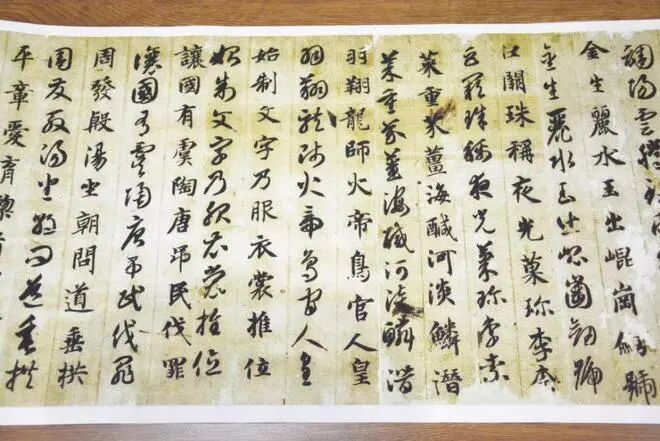 調陽雲騰致
金生麗水玉出崐崗劍號
金生麗水玉出崐崗劍號
巨闕珠稱夜光菓珍李柰
巨闕珠稱夜光菓珍李柰
菜重芥薑海鹹河淡鱗潛
菜重芥薑海鹹河淡鱗潛
羽翔龍師火帝鳥官人皇
羽翔龍師火帝鳥官人皇
始制文字乃服衣裳推位
始制文字乃服衣裳推位
讓國有虞陶唐弔民伐罪
讓國有虞陶唐弔民伐罪
周發殷湯坐朝問道垂拱
周發殷湯坐朝問道垂拱
平章愛育黎首